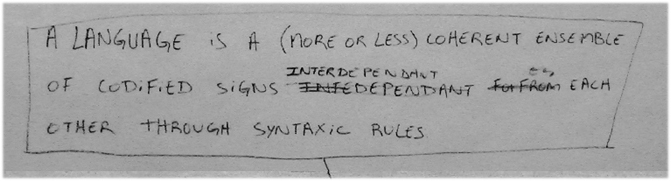 A LANGUAGE IS A (MORE OR LESS) COHERENT ENSEMBLE
INTERDEPENDANT
OF CODIFIED SIGNS DEPENDANT FROM EACH
OTHER THROUGH SYNTAXIC RULES